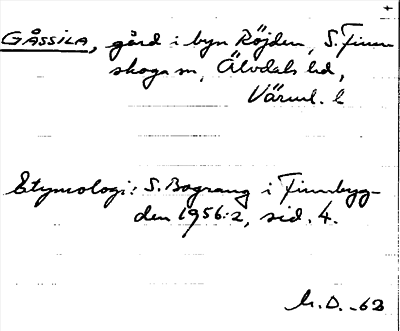 GÅSSILA, gård i byn Röjden, S. Finn
skoga sn, Älvdals hd,
Värml. l
Etymologi: S. Bograng i Finnbyg-
den 1956:2, sid. 4.
M.D. -63